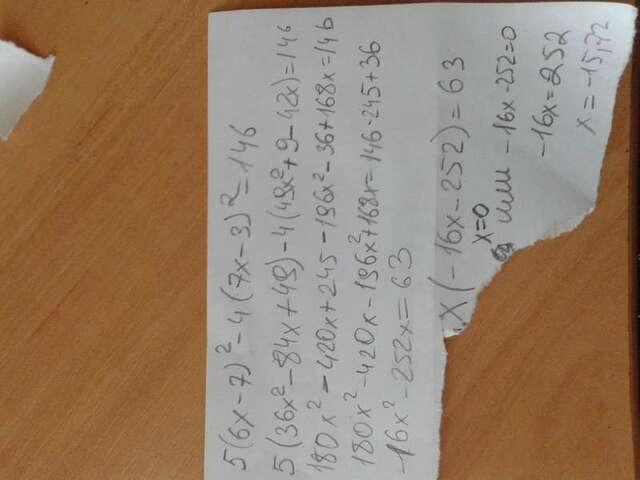 5(6x-7)²-4(7x-3)²=146
5(36x²-84x+49)-4(49x²+9-42x)=146
180x²-420x+245-196x²-36+168x=146
180x²-420x-196x²+168x=146-245+36
-16x²-252x=63
x(-16x-252)=63
x=0
или -16x-252=0
-16x=252
x=-15,72